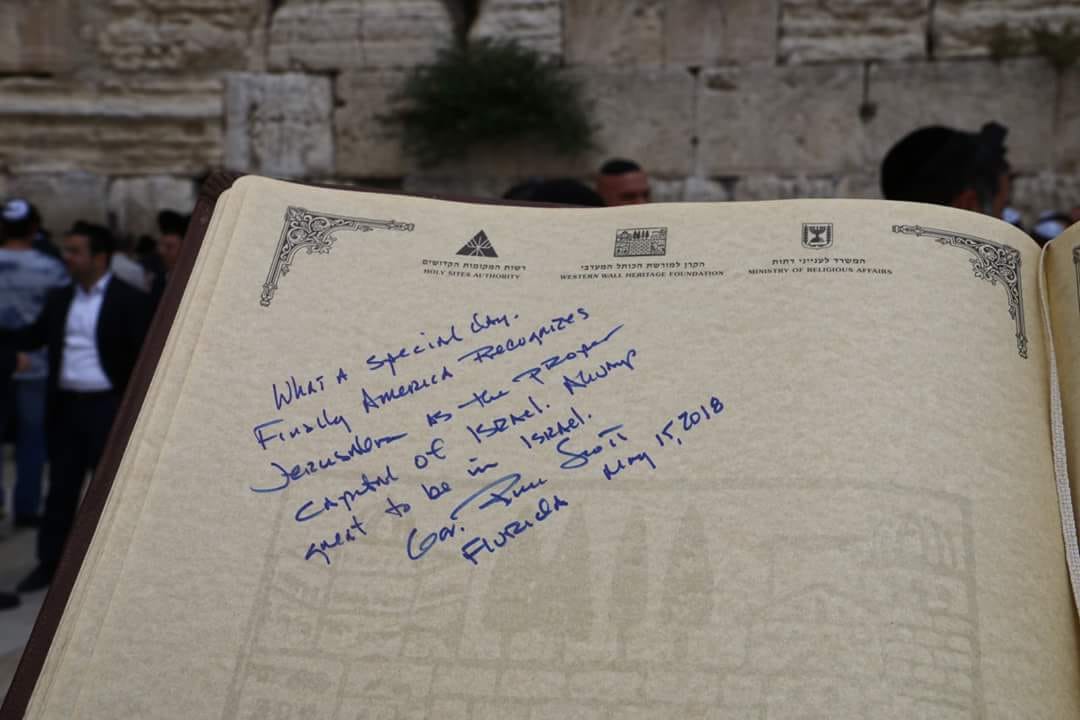 רשות המקומות הקדושים
HOLY SITES AUTHORITY
הקרן למורשת הכותל המערבי
WESTERN WALL HERITAGE FOUNDATION
המשרד לענייני דתות
MINISTRY OF RELIGIOUS AFFAIRS
What a special day.
Finally America Recognizes
Jerusalem as the proper
capital of Israel. Always
great to be in Israel.
Gov. Rick Scott
Florida May 15, 2018